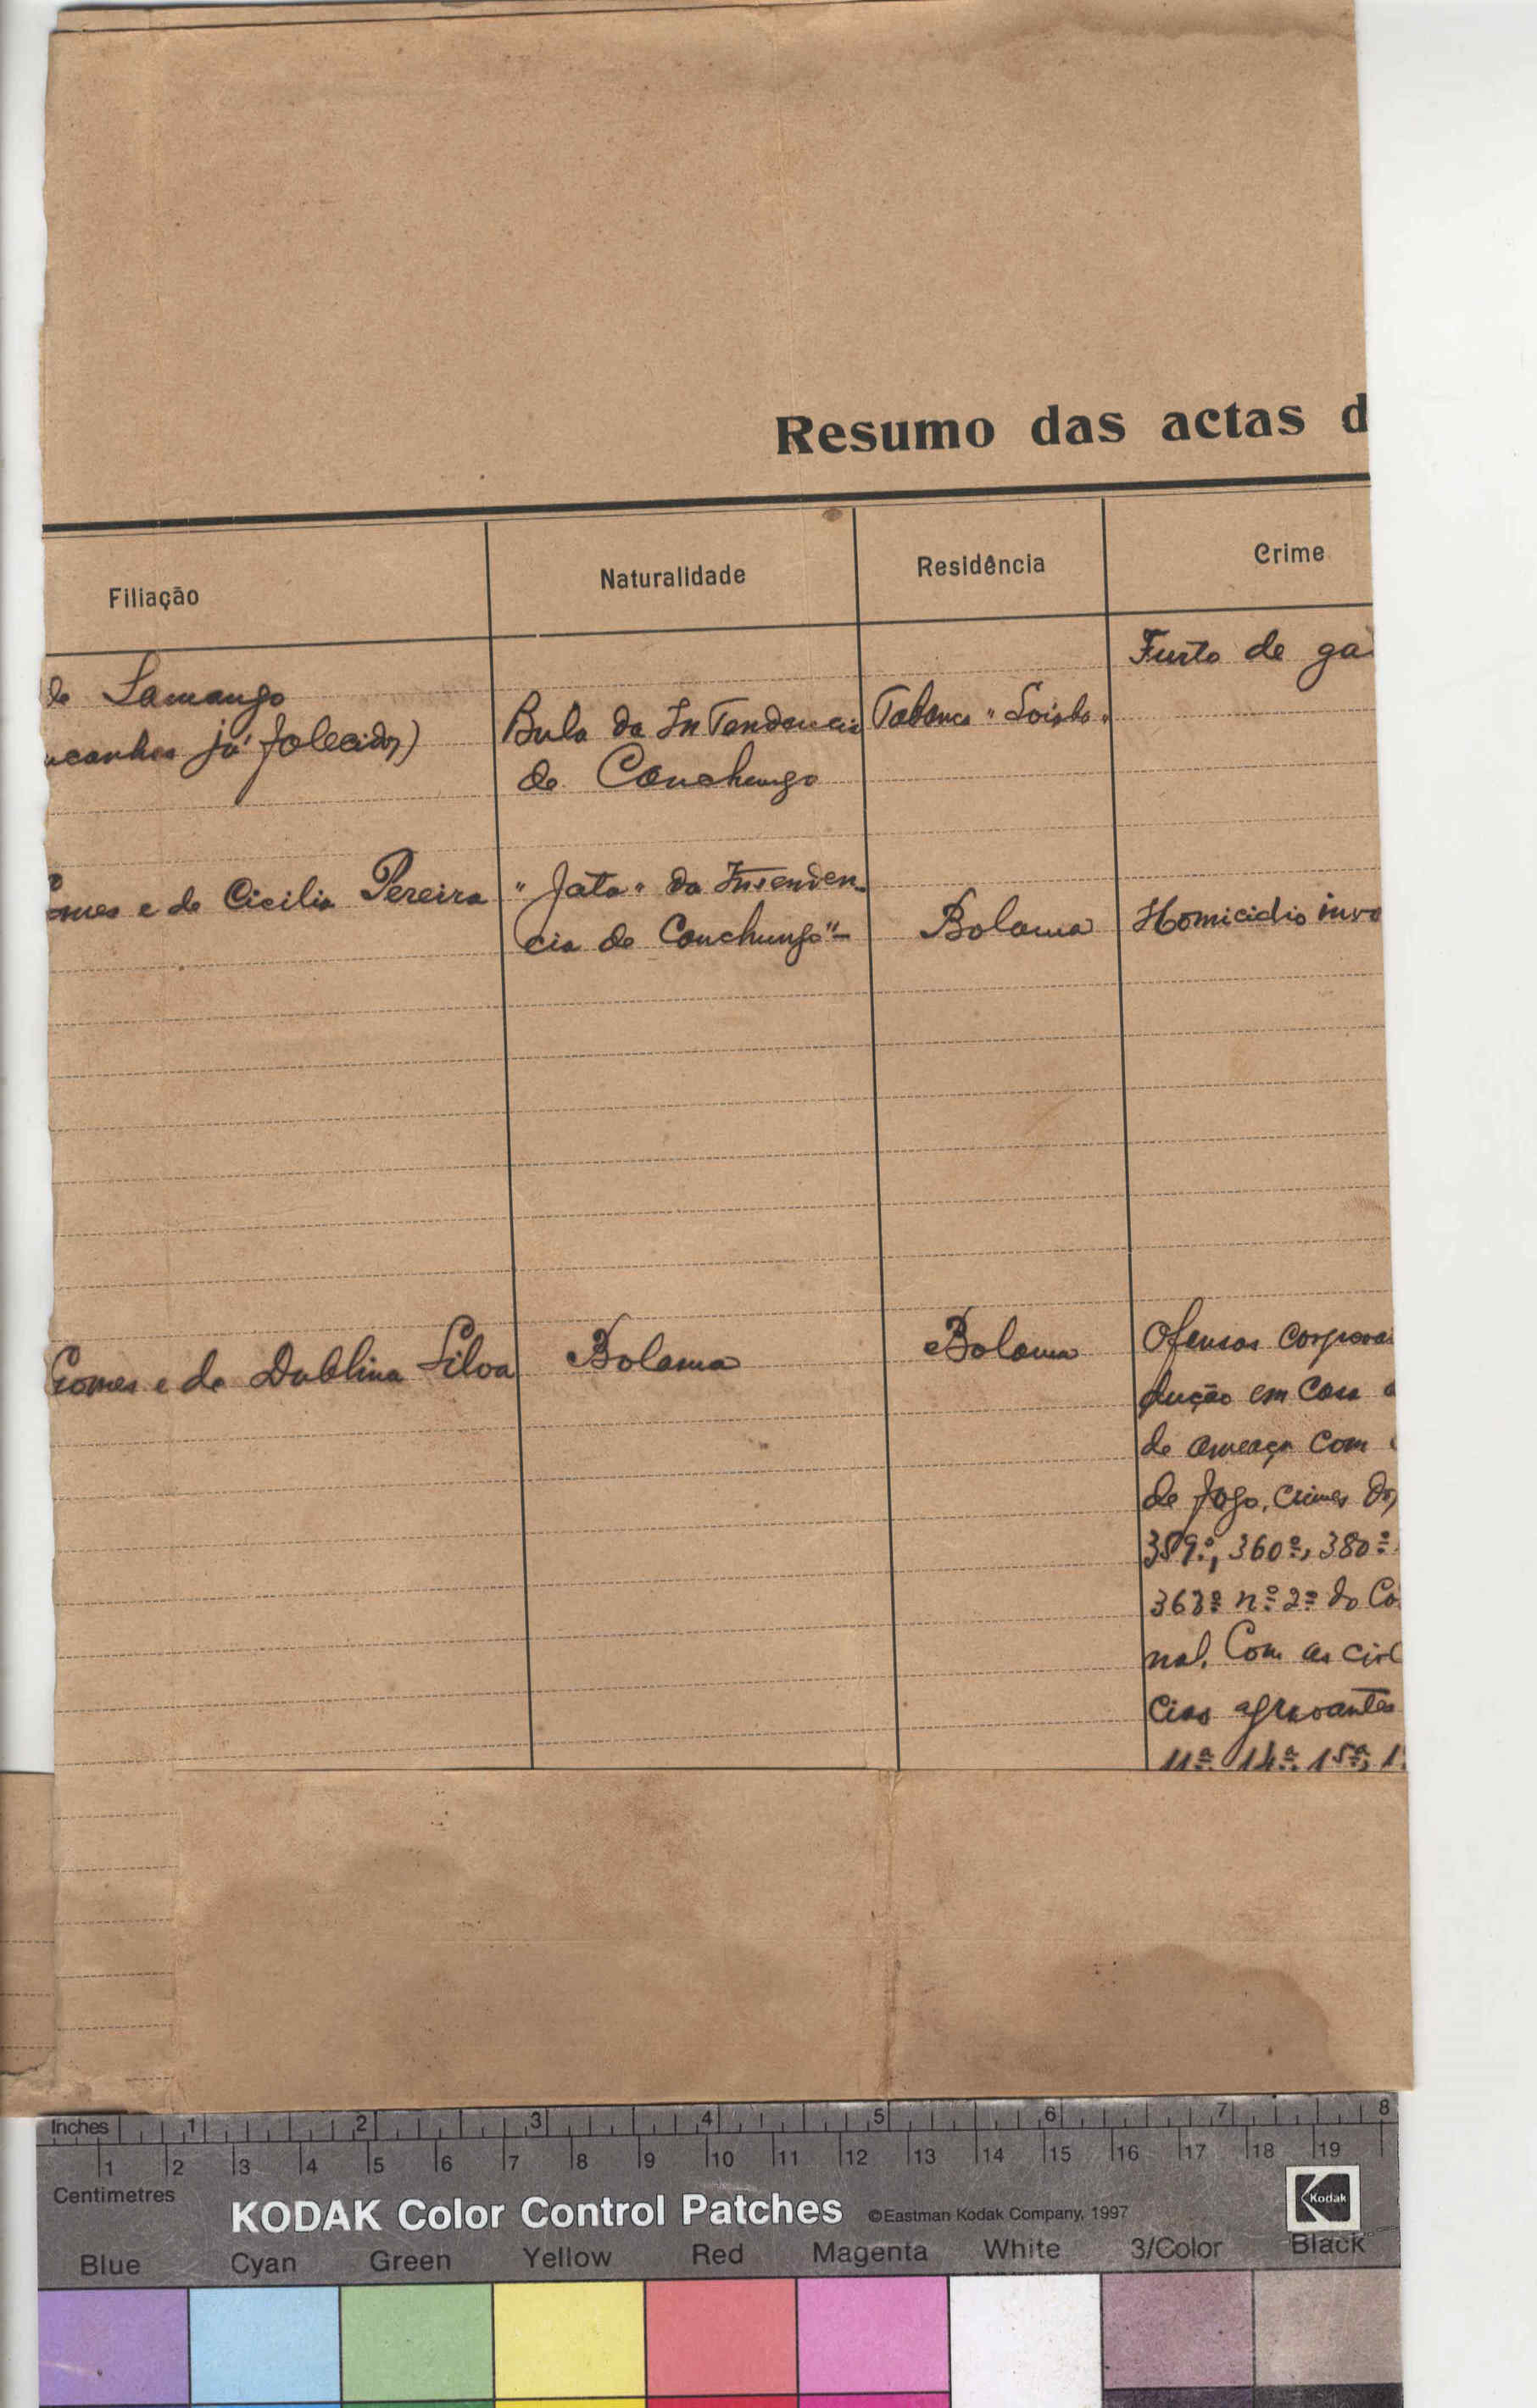 Resumo das actas d
Filiação
Naturalidade
Residência
Crime
de Samango
já falecidos)
Bula da Intendencia
de Canchungo
Tabanca
Furto de ga
omes e de Cicilia Pereira
"Jata" da Intenden-
cia de Canchungo"-
Bolama
Homicidio invo
Gomes e de Dublina Silva
Bolama
Bolama
Ofensas corporai
dução em casa a
de ameaça com
de fogo, crimes dos
359º, 360º, 380º
363º nº 2º do Có
nal. Com as circ
cias agravantes
11ª, 14ª, 15ª, 1
Inches 1 2 3 4 5 6 7 8
1 2 3 4 5 6 7 8 9 10 11 12 13 14 15 16 17 18 19
Centimetres
KODAK Color Control Patches ©Eastman Kodak Company, 1997 Kodak
Blue Cyan Green Yellow Red Magenta White 3/Color Black